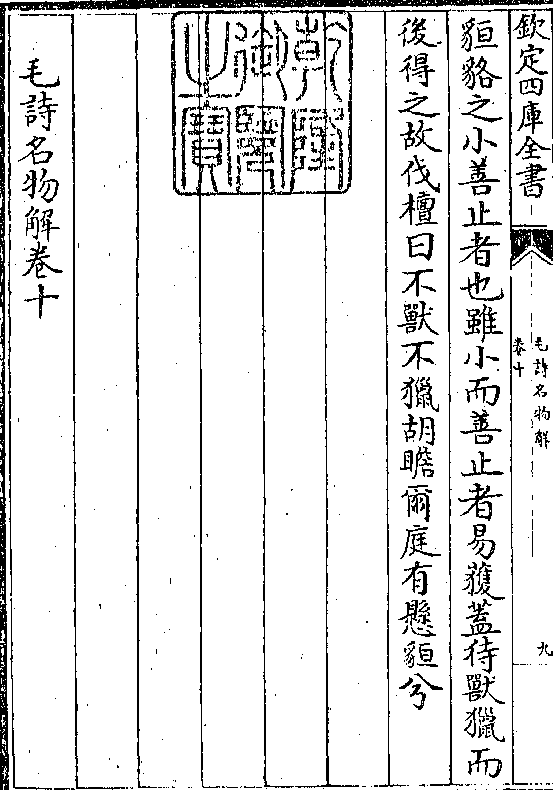 欽定四庫全書
毛詩名物解
卷十
九
貆貉之小善止者也雖小而善止者易獲蓋待獸獵而
後得之故伐檀曰不獸不獵胡瞻爾庭有懸貆兮
乾隆
御覽
之寶
毛詩名物解卷十